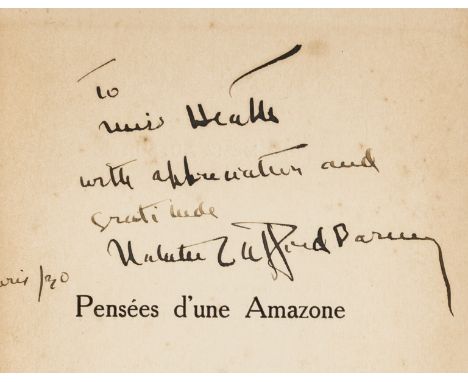 To
Miss Heath
with appreciation and
gratitude
Natalie Clifford Barney
Paris/20
Pensées d'une Amazone